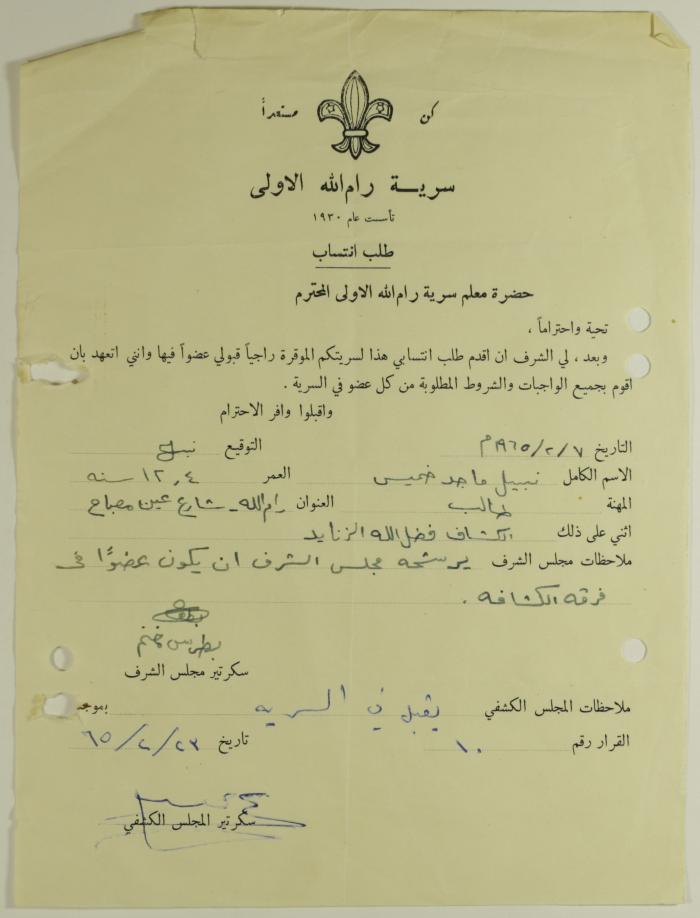 كن مستعداً
سرية رام الله الاولى
تأسست عام ١٩٣٠
طلب انتساب
حضرة معلم سرية رام الله الاولى المحترم
تحية واحتراماً ،
وبعد ، لي الشرف ان اقدم طلب انتسابي هذا لسريتكم الموقرة راجياً قبولي عضواً فيها وانني اتعهد بان
اقوم بجميع الواجبات والشروط المطلوبة من كل عضو في السرية .
واقبلوا وافر الاحترام
التاريخ ٧/٢/١٩٦٥م التوقيع نبيل
الاسم الكامل نبيل ماجد خميس العمر ١٢,٤ سنه
المهنة طالب العنوان رام الله - شارع عين مصباح
اثني على ذلك الكشاف فضل الله الزنايد
ملاحظات مجلس الشرف يرشحه مجلس الشرف ان يكون عضوًا في
فرقه الكشافه .
بطرس
سكرتير مجلس الشرف
ملاحظات المجلس الكشفي يقبل في السريه بموجب
القرار رقم ١٠ تاريخ ٢٣/٢/٦٥
سكرتير المجلس الكشفي